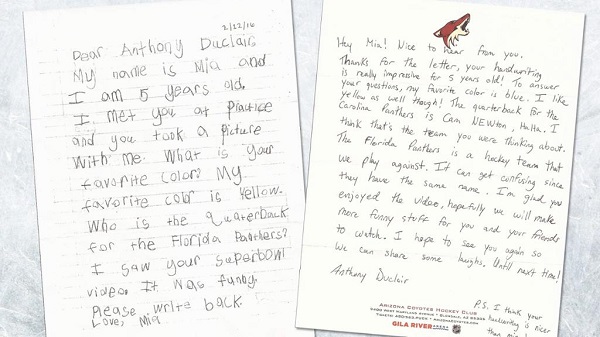 2/22/16
Dear Anthony Duclair,
My name is Mia and
I am 5 years old.
I met you at practice
and you took a picture
with me. What is your
favorite color? My
favorite color is yellow.
Who is the quaterback
for the Florida Panthers?
I saw your superbowl
video. It was funny.
Please write back.
Love, Mia
Hey Mia! Nice to hear from you.
Thanks for the letter, your handwriting
is really impressive for 5 years old! To answer
your questions, my favorite color is blue. I like
yellow as well though! The quarterback for the
Carolina Panthers is Cam NEWton, haha. I
think that's the team you were thinking about.
The Florida Panthers is a hockey team that
we play against. It can get confusing since
they have the same name. I'm glad you
enjoyed the video, hopefully we will make
more funny stuff for you and your friends
to watch. I hope to see you again so
we can share some laughs. Until next time!
Anthony Duclair
P.S. I think your
handwriting is nicer
than mine!
ARIZONA COYOTES HOCKEY CLUB
GILA RIVER ARENA
NHL